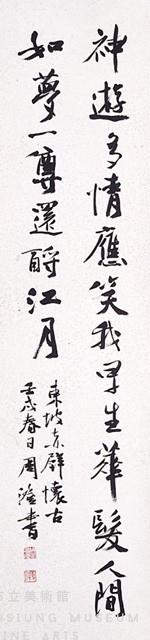 神遊多情應笑我早生華髮人間
如夢一尊還酹江月
東坡赤壁懷古
壬戌春日周澄書
立美術館
HSIUNG MUSEUM
FINE ARTS